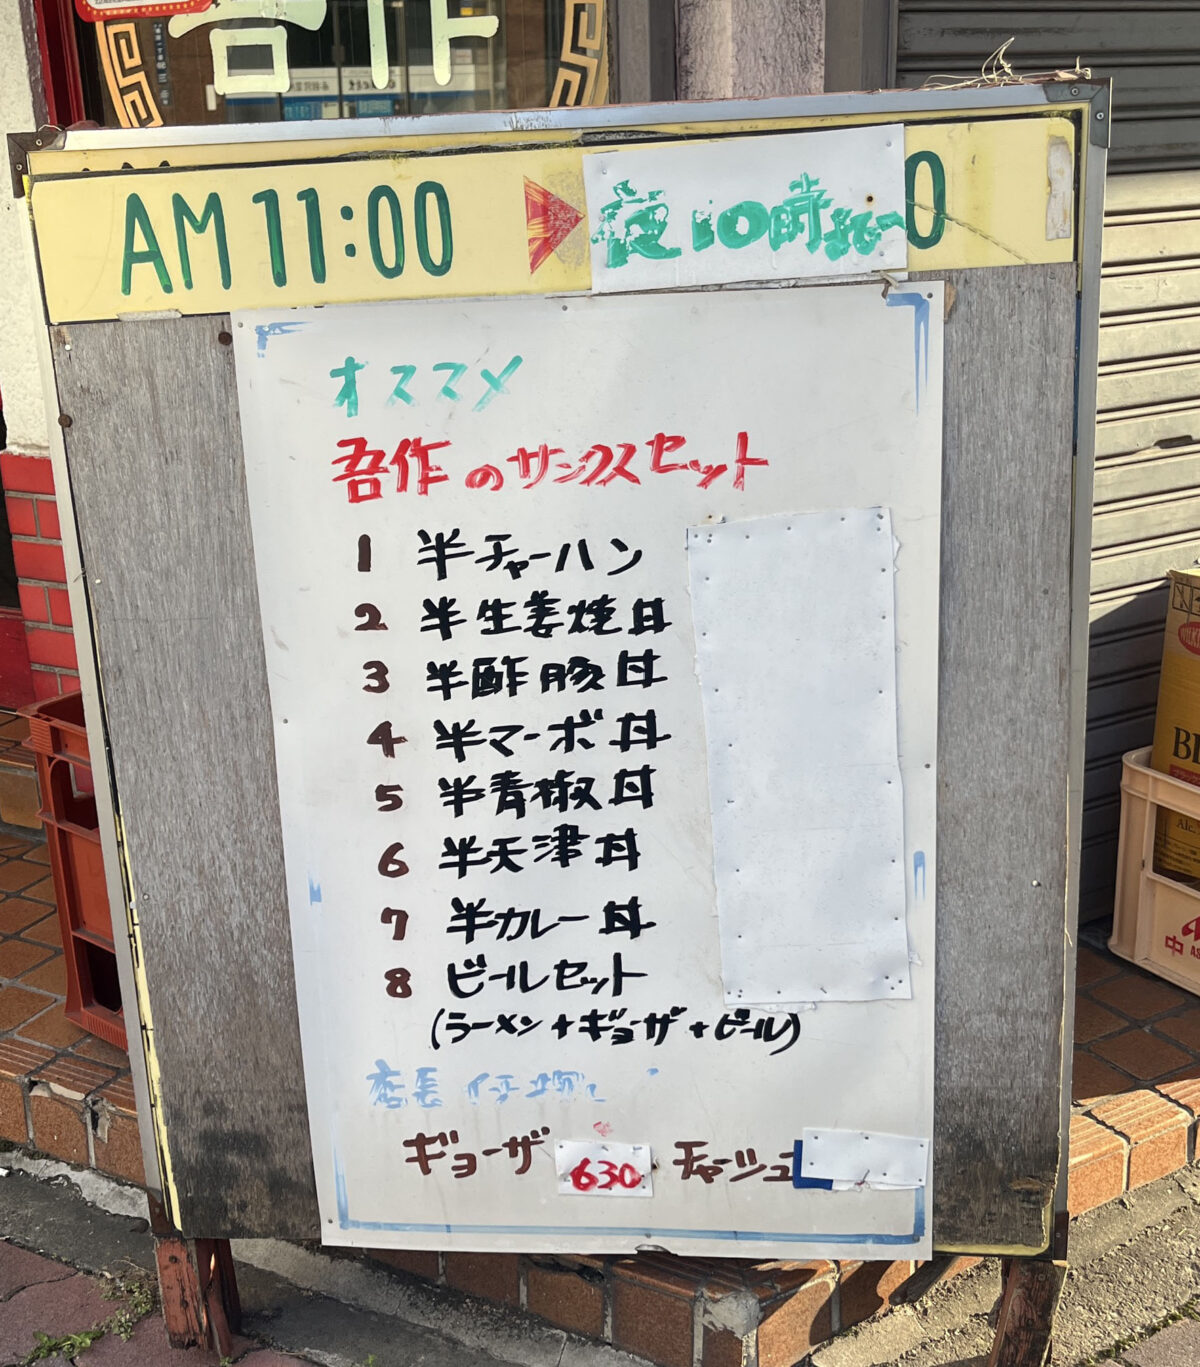 吾作
AM 11:00 夜10時 0
オススメ
吾作のサンクスセット
1 半チャーハン
2 半生姜焼丼
3 半酢豚丼
4 半マーボ丼
5 半青椒丼
6 半天津丼
7 半カレー丼
8 ビールセット
(ラーメン+ギョーザ+ビール)
店長
ギョーザ 630 チャーシュー